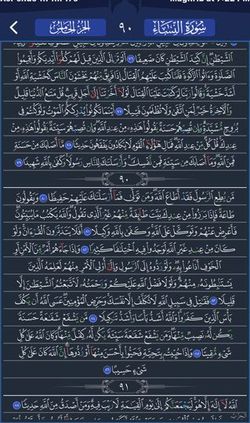 سورة النساء
٩٠
الجزء الخامس
الشَّيْطَٰنِ إِنَّ كَيْدَ الشَّيْطَٰنِ كَانَ ضَعِيفًا ٧٦ أَلَمْ تَرَ إِلَى الَّذِينَ قِيلَ لَهُمْ كُفُّوا أَيْدِيَكُمْ وَأَقِيمُوا
الصَّلَوٰةَ وَءَاتُوا الزَّكَوٰةَ فَلَمَّا كُتِبَ عَلَيْهِمُ الْقِتَالُ إِذَا فَرِيقٌ مِنْهُمْ يَخْشَوْنَ النَّاسَ كَخَشْيَةِ اللَّهِ أَوْ
أَشَدَّ خَشْيَةً وَقَالُوا رَبَّنَا لِمَ كَتَبْتَ عَلَيْنَا الْقِتَالَ لَوْلَا أَخَّرْتَنَا إِلَىٰ أَجَلٍ قَرِيبٍ قُلْ مَتَٰعُ الدُّنْيَا قَلِيلٌ
وَالْءَاخِرَةُ خَيْرٌ لِمَنِ اتَّقَىٰ وَلَا تُظْلَمُونَ فَتِيلًا ٧٧ أَيْنَمَا تَكُونُوا يُدْرِككُّمُ الْمَوْتُ وَلَوْ كُنْتُمْ فِي
بُرُوجٍ مُشَيَّدَةٍ وَإِنْ تُصِبْهُمْ حَسَنَةٌ يَقُولُوا هَٰذِهِ مِنْ عِنْدِ اللَّهِ وَإِنْ تُصِبْهُمْ سَيِّئَةٌ يَقُولُوا هَٰذِهِ مِنْ
عِنْدِكَ قُلْ كُلٌّ مِنْ عِنْدِ اللَّهِ فَمَالِ هَٰؤُلَاءِ الْقَوْمِ لَا يَكَادُونَ يَفْقَهُونَ حَدِيثًا ٧٨ مَا أَصَابَكَ مِنْ حَسَنَةٍ
فَمِنَ اللَّهِ وَمَا أَصَابَكَ مِنْ سَيِّئَةٍ فَمِنْ نَفْسِكَ وَأَرْسَلْنَٰكَ لِلنَّاسِ رَسُولًا وَكَفَىٰ بِاللَّهِ شَهِيدًا ٧٩
٩٠
مَنْ يُطِعِ الرَّسُولَ فَقَدْ أَطَاعَ اللَّهَ وَمَنْ تَوَلَّىٰ فَمَا أَرْسَلْنَٰكَ عَلَيْهِمْ حَفِيظًا ٨٠ وَيَقُولُونَ
طَاعَةٌ فَإِذَا بَرَزُوا مِنْ عِنْدِكَ بَيَّتَ طَائِفَةٌ مِنْهُمْ غَيْرَ الَّذِي تَقُولُ وَاللَّهُ يَكْتُبُ مَا يُبَيِّتُونَ
فَأَعْرِضْ عَنْهُمْ وَتَوَكَّلْ عَلَى اللَّهِ وَكَفَىٰ بِاللَّهِ وَكِيلًا ٨١ أَفَلَا يَتَدَبَّرُونَ الْقُرْءَانَ وَلَوْ
كَانَ مِنْ عِنْدِ غَيْرِ اللَّهِ لَوَجَدُوا فِيهِ اخْتِلَٰفًا كَثِيرًا ٨٢ وَإِذَا جَاءَهُمْ أَمْرٌ مِنَ الْأَمْنِ أَوِ
الْخَوْفِ أَذَاعُوا بِهِ وَلَوْ رَدُّوهُ إِلَى الرَّسُولِ وَإِلَىٰ أُولِي الْأَمْرِ مِنْهُمْ لَعَلِمَهُ الَّذِينَ
يَسْتَنْبِطُونَهُ مِنْهُمْ وَلَوْلَا فَضْلُ اللَّهِ عَلَيْكُمْ وَرَحْمَتُهُ لَاتَّبَعْتُمُ الشَّيْطَٰنَ إِلَّا
قَلِيلًا ٨٣ فَقَٰتِلْ فِي سَبِيلِ اللَّهِ لَا تُكَلَّفُ إِلَّا نَفْسَكَ وَحَرِّضِ الْمُؤْمِنِينَ عَسَى اللَّهُ أَنْ يَكُفَّ
بَأْسَ الَّذِينَ كَفَرُوا وَاللَّهُ أَشَدُّ بَأْسًا وَأَشَدُّ تَنْكِيلًا ٨٤ مَنْ يَشْفَعْ شَفَٰعَةً حَسَنَةً
يَكُنْ لَهُ نَصِيبٌ مِنْهَا وَمَنْ يَشْفَعْ شَفَٰعَةً سَيِّئَةً يَكُنْ لَهُ كِفْلٌ مِنْهَا وَكَانَ اللَّهُ عَلَىٰ كُلِّ
شَيْءٍ مُقِيتًا ٨٥ وَإِذَا حُيِّيتُمْ بِتَحِيَّةٍ فَحَيُّوا بِأَحْسَنَ مِنْهَا أَوْ رُدُّوهَا إِنَّ اللَّهَ كَانَ عَلَىٰ كُلِّ
شَيْءٍ حَسِيبًا ٨٦
٩١
اللَّهُ لَا إِلَٰهَ إِلَّا هُوَ لَيَجْمَعَنَّكُمْ إِلَىٰ يَوْمِ الْقِيَٰمَةِ لَا رَيْبَ فِيهِ وَمَنْ أَصْدَقُ مِنَ اللَّهِ حَدِيثًا ٨٧